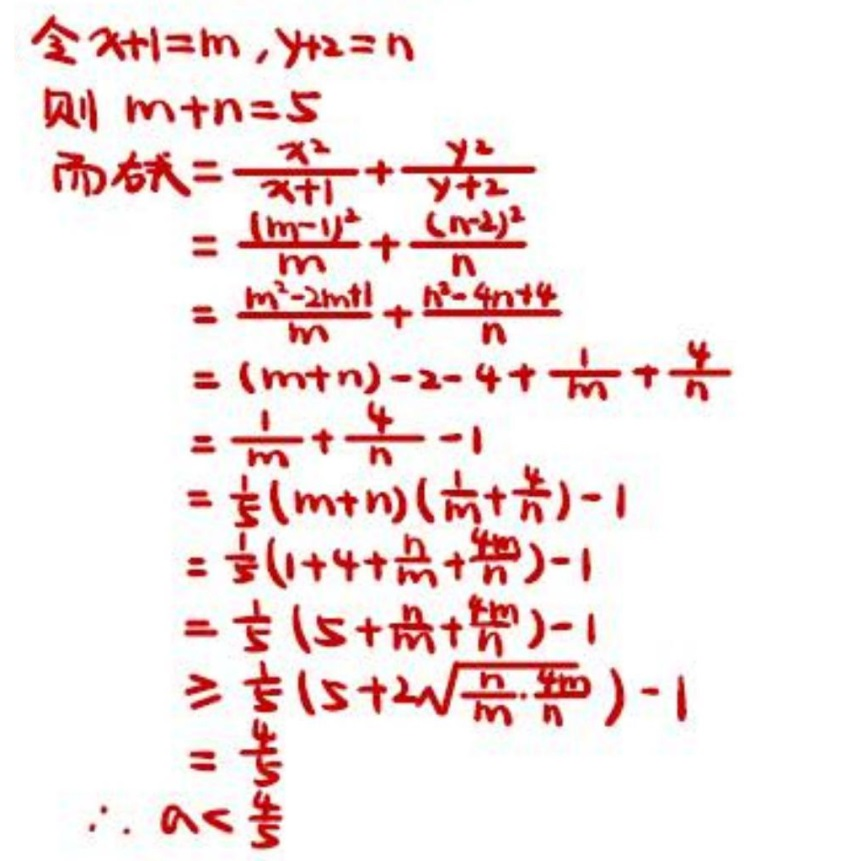 令 x+1=m, y+2=n
则 m+n=5
而右式= x²/(x+1) + y²/(y+2)
= (m-1)²/m + (n-2)²/n
= (m²-2m+1)/m + (n²-4n+4)/n
= (m+n)-2-4+1/m+4/n
= 1/m+4/n-1
= 1/5(m+n)(1/m+4/n)-1
= 1/5(1+4+n/m+4m/n)-1
= 1/5(5+n/m+4m/n)-1
≥ 1/5(5+2√(n/m·4m/n))-1
= 4/5
∴ a<4/5